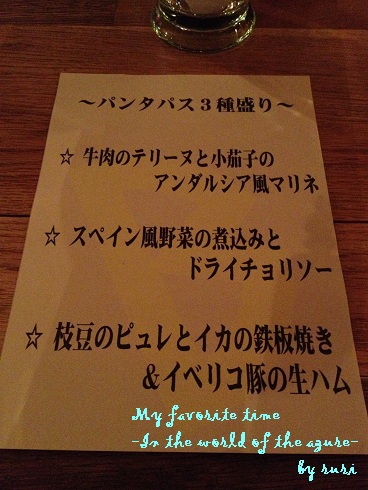 ～パンタパス３種盛り～
☆ 牛肉のテリーヌと小茄子の
アンダルシア風マリネ
☆ スペイン風野菜の煮込みと
ドライチョリソー
☆ 枝豆のピュレとイカの鉄板焼き
＆イベリコ豚の生ハム
My favorite time
-In the world of the azure-
by ruri